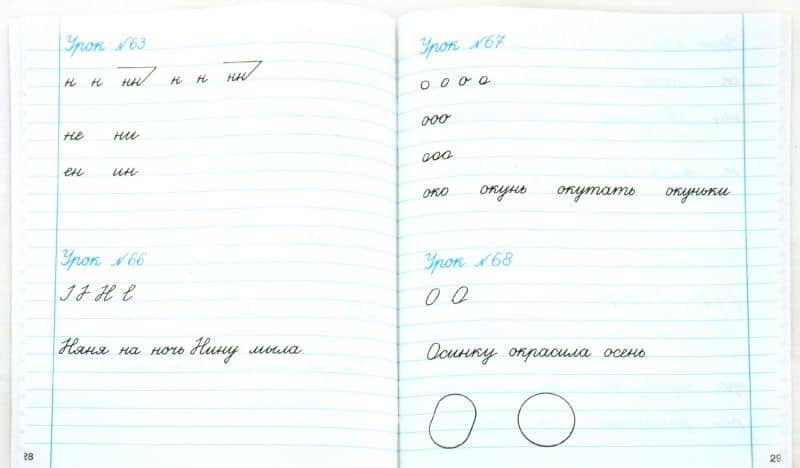 Урок №63
н н нн н н нн
не ни
ен ин
Урок №66
Н
Няня на ночь Нину мыла.
28
Урок №67
о о о о
ооо
ооо
око окунь окутать окуньки
Урок №68
О О
Осинку окрасила осень.
29